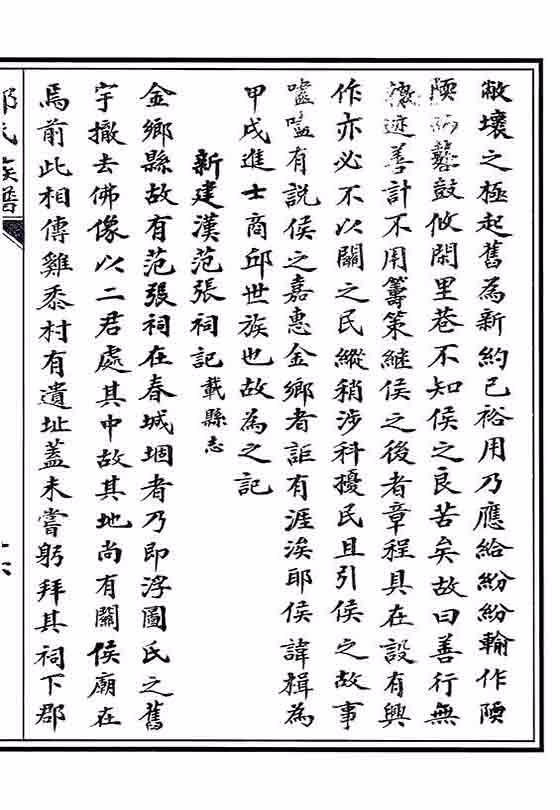 敝壞之極起舊為新約己裕用乃應給紛紛輸作陾
陾馮馮鼛鼓攸閑里巷不知侯之良苦矣故曰善行無
轍迹善計不用籌策繼侯之後者章程具在設有興
作亦必不以關之民縱稍涉科擾民且引侯之故事
嘘嘘有說侯之嘉惠金鄉者詎有涯涘耶侯諱楫為
甲戌進士商邱世族也故為之記
新建漢范張祠記載縣志
金鄉縣故有范張祠在春城堌者乃即浮圖氏之舊
宇撤去佛像以二君處其中故其地尚有關侯廟在
焉前此相傳雞黍村有遺址蓋未嘗躬拜其祠下郡
氏族譜
十六